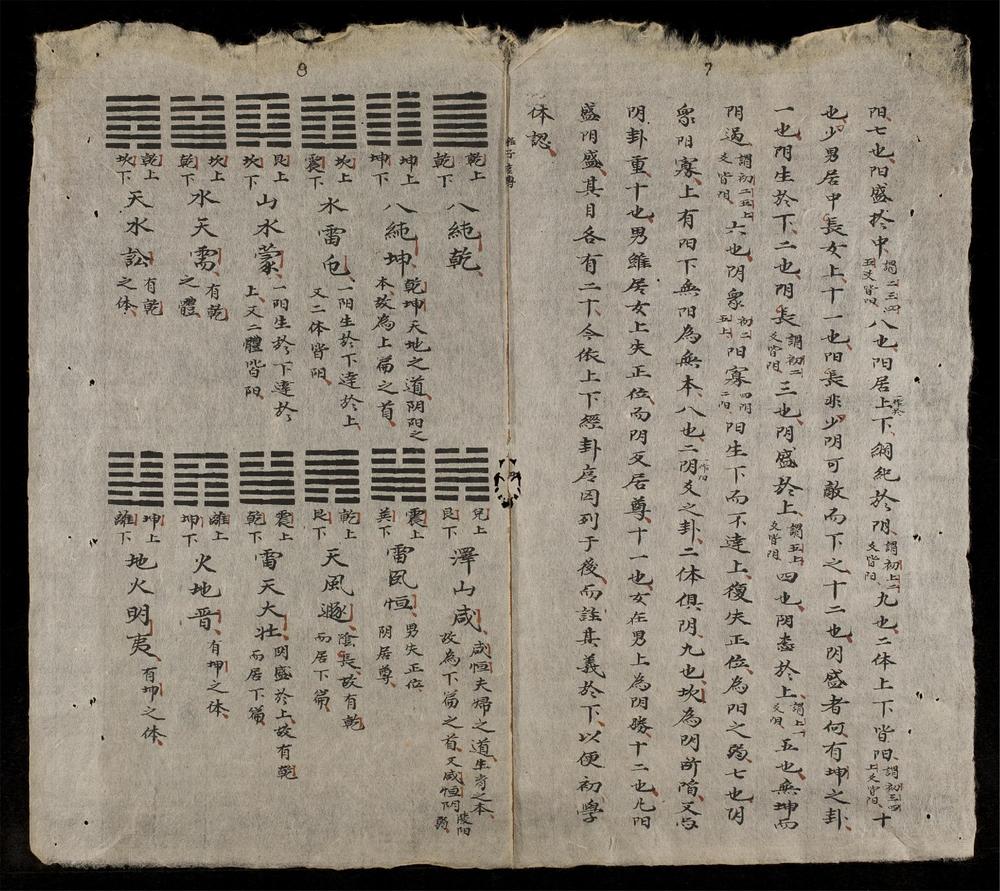 7
阳七也阳盛於中謂二三四五爻皆阳八也阳居上下綱紀於阴謂初上二爻皆阳九也二体上下皆阳謂初三四上爻皆阳十
也少男居中長女上十一也阳長非少阴可敵而下之十二也阴盛者何有坤之卦
一也阴生於下二也阴長謂初二爻皆阴三也阴盛於上謂五上爻皆阴四也阴悉於上謂上一爻阴五也無坤而
阴過謂初二五上爻皆阴六也阴衆初二五上阳寡四阴二阳阳生下而不達上復失正位為阳之弱七也阴
衆阳寡上有阳下無阳為無本八也二阴爻之卦二体俱阴九也坎為阴所陷又与
阴卦重十也男雖居女上失正位而阴反居尊十一也女在男上為阴勝十二也凡阳
盛阴盛其目各有二下今依上下經卦序因列于後而註其義於下以便初學
体認
8
乾上乾下八純乾
坤上坤下八純坤乾坤天地之道阴阳之本故為上篇之首
坎上震下水雷屯一阳生於下達於上又二体皆阳
艮上坎下山水蒙一阳生於下達於上又二體皆阳
坎上乾下水天需有乾之體
乾上坎下天水訟有乾之体
兌上艮下澤山咸咸恒夫婦之道生育之本故為下篇之首又咸恒阴陵阳弱
震上巽下雷風恒男失正位阴居尊
乾上艮下天風遯陰長故有乾而居下篇
震上乾下雷天大壮阴盛於上故有乾而居下篇
離上坤下火地晋有坤之体
坤上離下地火明夷有坤之体